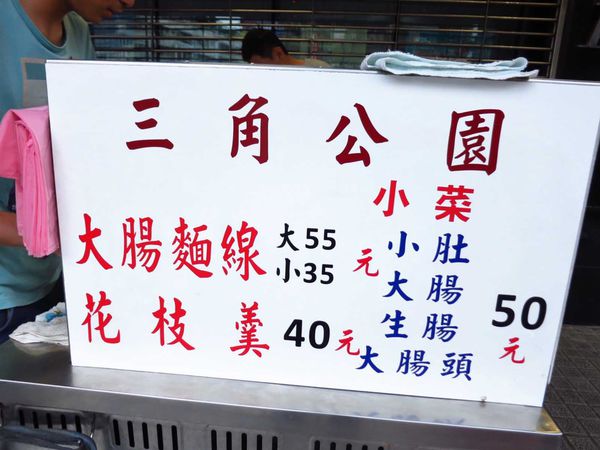 三角公園
大腸麵線 大55 小35 元
花枝羹 40元
小菜
小肚
大腸
生腸
大腸頭
50元